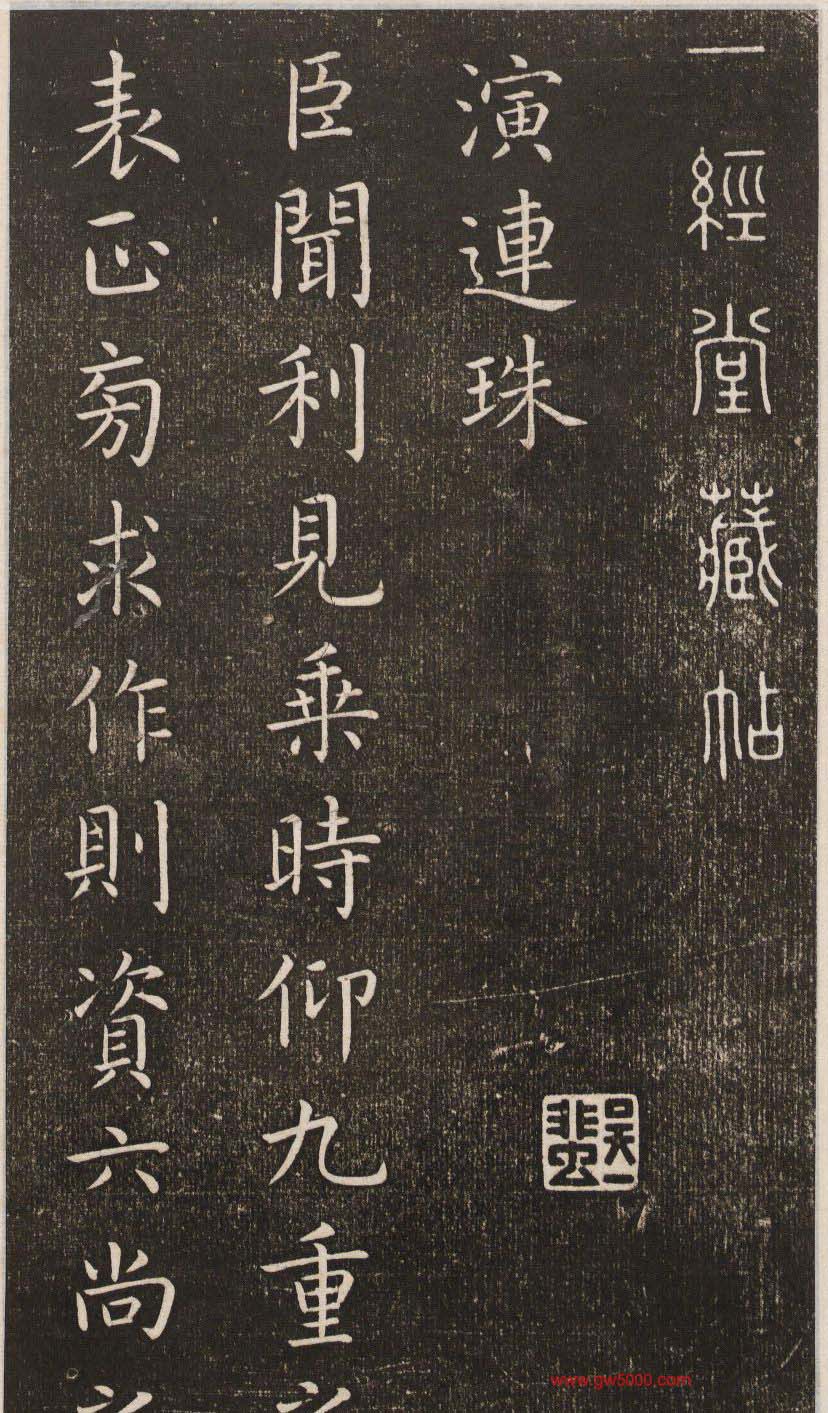 一經堂藏帖
演連珠
臣聞利見乗時仰九重
表正匃求作則資六尚
吳一蜚
www.gw5000.com